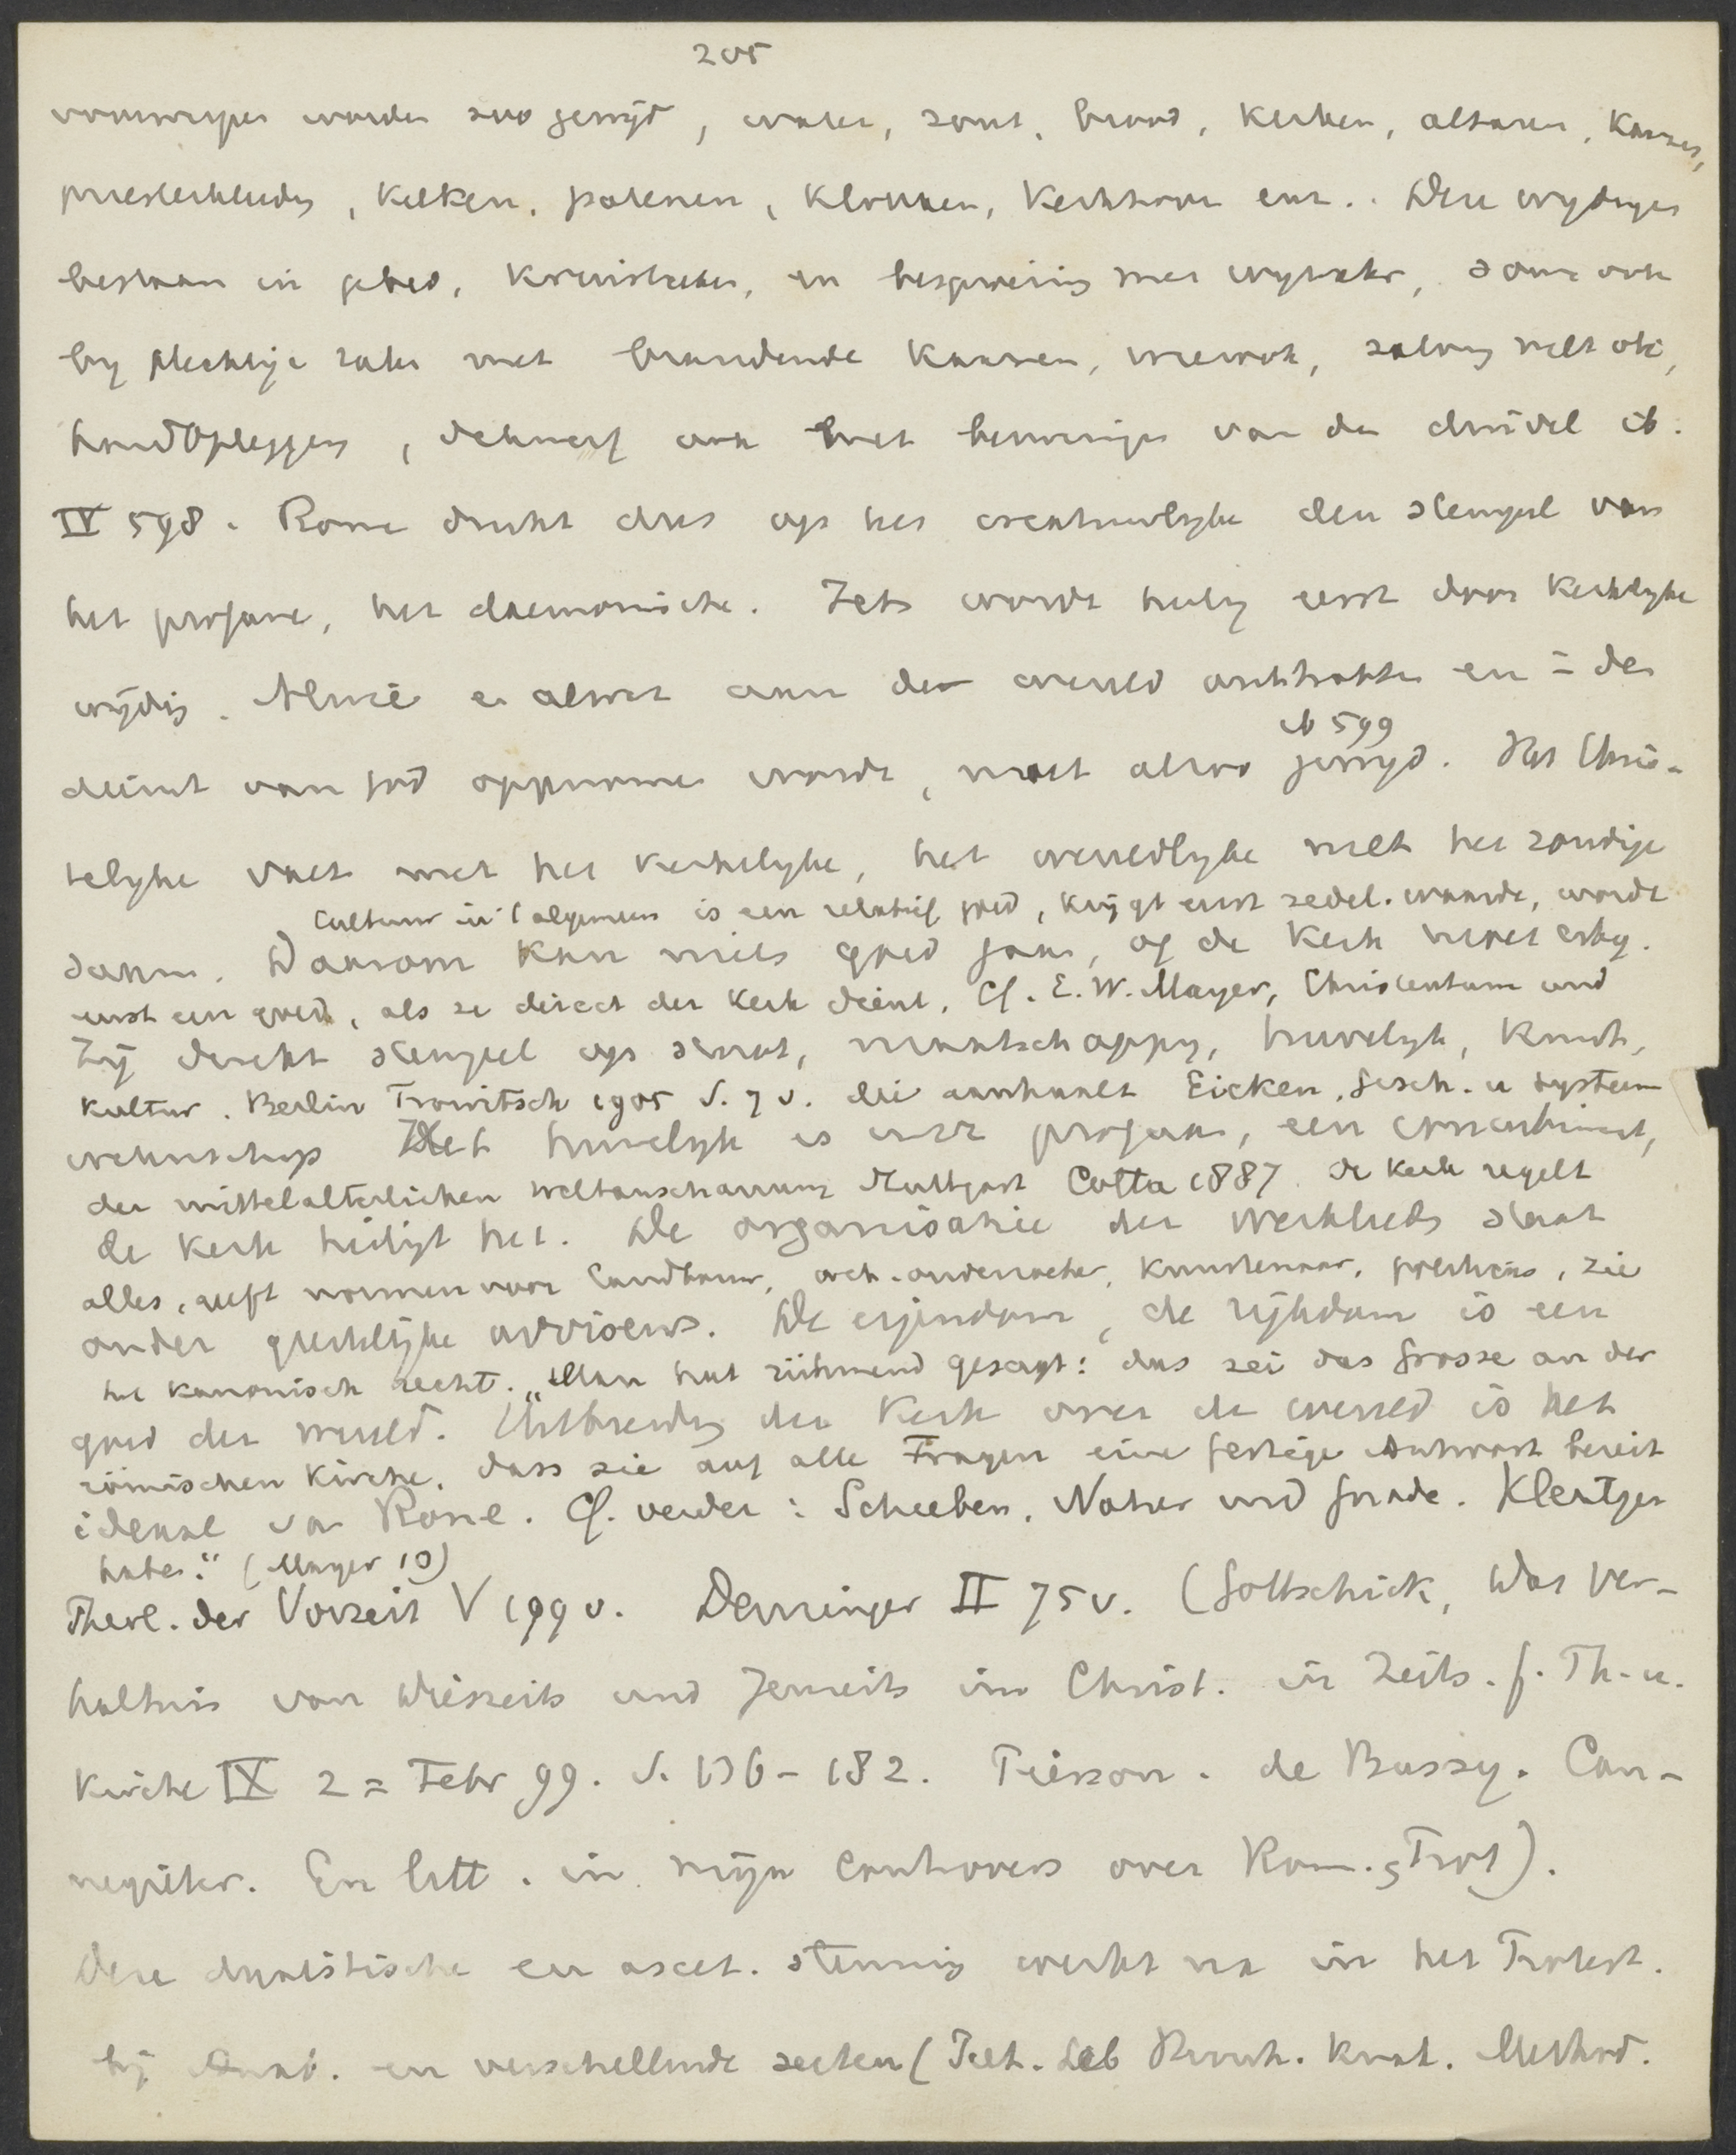 205
voorwerpen worden zoo gewijd, water, zout, brood, kerken, altaren, kaarsen,
priesterkleeding, kelken, patenen, klokken, kerkhoven enz.. Deze wijdingen
bestaan in gebed, kruisteeken, en besprenging met wijwater, soms ook
bij plechtige zaken met brandende kaarsen, wierook, zalving met olie,
handoplegging, dikwerf ook met bezweringen van den duivel ib.
IV 598. Rome drukt dus op het creatuurlijke den stempel van
het profane, het daemonische. Iets wordt heilig eerst door kerkelijke
wijding. Alwie en alwat aan de wereld onttrokken en in den
ib 599
dienst van God opgenomen wordt, moet alzoo gewijd. Het Chris-
telijke valt met het kerkelijke, het wereldlijke met het zondige
Cultuur in 't algemeen is een relatief goed, krijgt eerst zedel. waarde, wordt
samen. Daarom kan niets goed gaan, of de Kerk moet erbij.
eerst een goed, als ze direct der Kerk dient. Cf. E. W. Mayer, Christentum und
Zij drukt stempel op staat, maatschappij, huwelijk, kunst,
Kultur. Berlin Trowitsch 1905 S. 7 v. die aanhaalt Eicken, Gesch. u System
wetenschap Het huwelijk is iets profaans, een concubinaat,
der mittelalterlichen Weltanschauung Stuttgart Cotta 1887. de Kerk regelt
de Kerk heiligt het. De organisatie der werklieden staat
alles, geeft normen voor landbouw, ond.
onder geestelijke adviseurs. De eigendom, de rijkdom is een
het kanonisch recht. „Man hat rühmend gesagt: das sei das Grosse an der
goed der wereld. Uitbreiding der Kerk over de wereld is het
römischen Kirche, dass sie auf alle Fragen eine fertige Antwort bereit
ideaal van Rome. Cf. verder: Scheeben, Natur und Gnade. Kleutgen
habe." (Mayer 10)
Theol. der Vorzeit V 199 v. Denzinger II 75 v. (Gottschick, Das Ver-
hältnis von Diesseits und Jenseits im Christ. in Zeits. f. Th. u.
Kirche IX 2 = Febr 99. S. 136-182. Pierson. de Bussy. Can-
negieter. En litt. in mijn controvers over Rom. Prot).
Deze dualistische en ascet. stemming werkt na in het Protest.
bij Anab. en verschillende secten (Piet. Lab Methad.